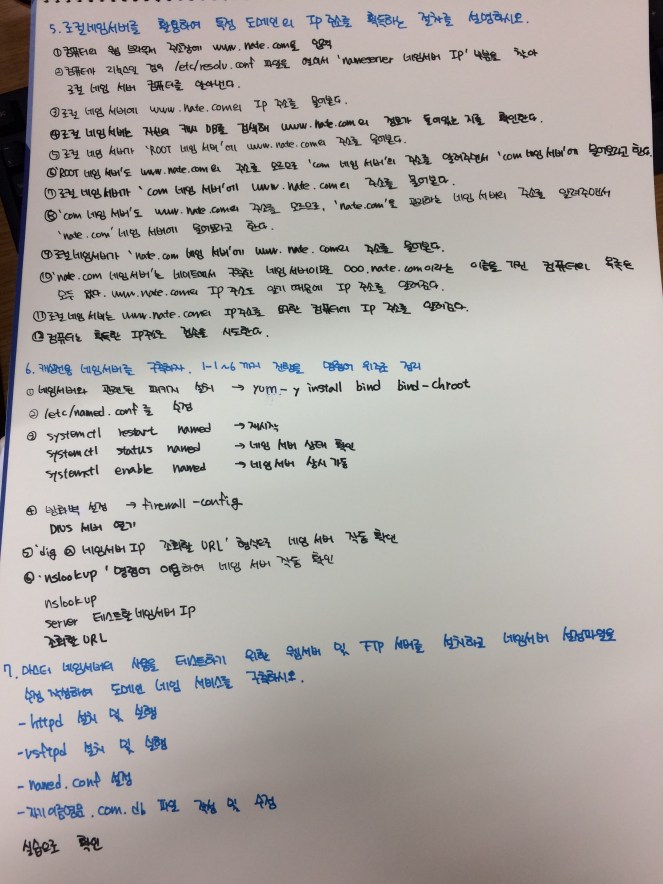 5. 로컬네임서버를 활용하여 특정 도메인의 IP주소를 획득하는 절차를 설명하시오.
① 컴퓨터의 웹 브라우저 주소창에 www.nate.com을 입력
② 컴퓨터가 리눅스일 경우 /etc/resolv.conf 파일을 열어서 'nameserver 네임서버 IP' 내용을 찾아
로컬 네임 서버 컴퓨터를 알아낸다.
③ 로컬 네임서버에 www.nate.com의 IP 주소를 물어본다.
④ 로컬 네임 서버는 자신의 캐시 DB를 검색해 www.nate.com의 정보가 들어있는 지를 확인한다.
⑤ 로컬 네임 서버가 'ROOT 네임 서버'에 www.nate.com의 주소를 물어본다.
⑥ 'ROOT 네임 서버'도 www.nate.com의 주소를 모르므로 'com 네임 서버'의 주소를 알려주면서 'com 네임 서버'에 물어보라고 한다.
⑦ 로컬 네임서버가 'com 네임 서버'에 www.nate.com의 주소를 물어본다.
⑧ 'com 네임 서버'도 www.nate.com의 주소를 모르므로, 'nate.com'을 관리하는 네임 서버의 주소를 알려주면서
'nate.com' 네임 서버에 물어보라고 한다.
⑨ 로컬 네임서버가 'nate.com 네임 서버'에 www.nate.com의 주소를 물어본다.
⑩ 'nate.com 네임서버'는 네이트에서 구축한 네임 서버이므로 OOO.nate.com이라는 이름을 가진 컴퓨터의 목록은
모두 있다. www.nate.com의 IP 주소도 알기 때문에 IP 주소를 알려준다.
⑪ 로컬 네임서버는 www.nate.com의 IP주소를 요구한 컴퓨터에 IP 주소를 알려준다.
⑫ 컴퓨터는 획득한 IP주소로 접속을 시도한다.
6. 캐싱전용 네임서버를 구축하자. 1-1~6까지 진행을 명령어 위주로 정리
① 네임서버와 관련된 패키지 설치 → yum -y install bind bind-chroot
② /etc/named.conf를 수정
③ systemctl restart named → 재시작
systemctl status named → 네임 서버 상태 확인
systemctl enable named → 네임서버 상시 가동
④ 방화벽 설정 → firewall-config
DNS 서버 열기
⑤ 'dig @네임서버IP 조회할 URL' 형식으로 네임 서버 작동 확인
⑥ 'nslookup' 명령어 이용하여 네임 서버 작동 확인
nslookup
server 테스트할네임서버 IP
조회할 URL
7. 마스터 네임서버의 사용을 테스트하기 위한 웹서버 및 FTP 서버를 설치하고 네임서버 설정파일을
수정 작성하여 도메인 네임 서비스를 구축하시오.
- httpd 설치 및 실행
- vsftpd 설치 및 실행
- named.conf 설정
- 자기이름영문.com.db 파일 작성 및 수정
실습으로 확인